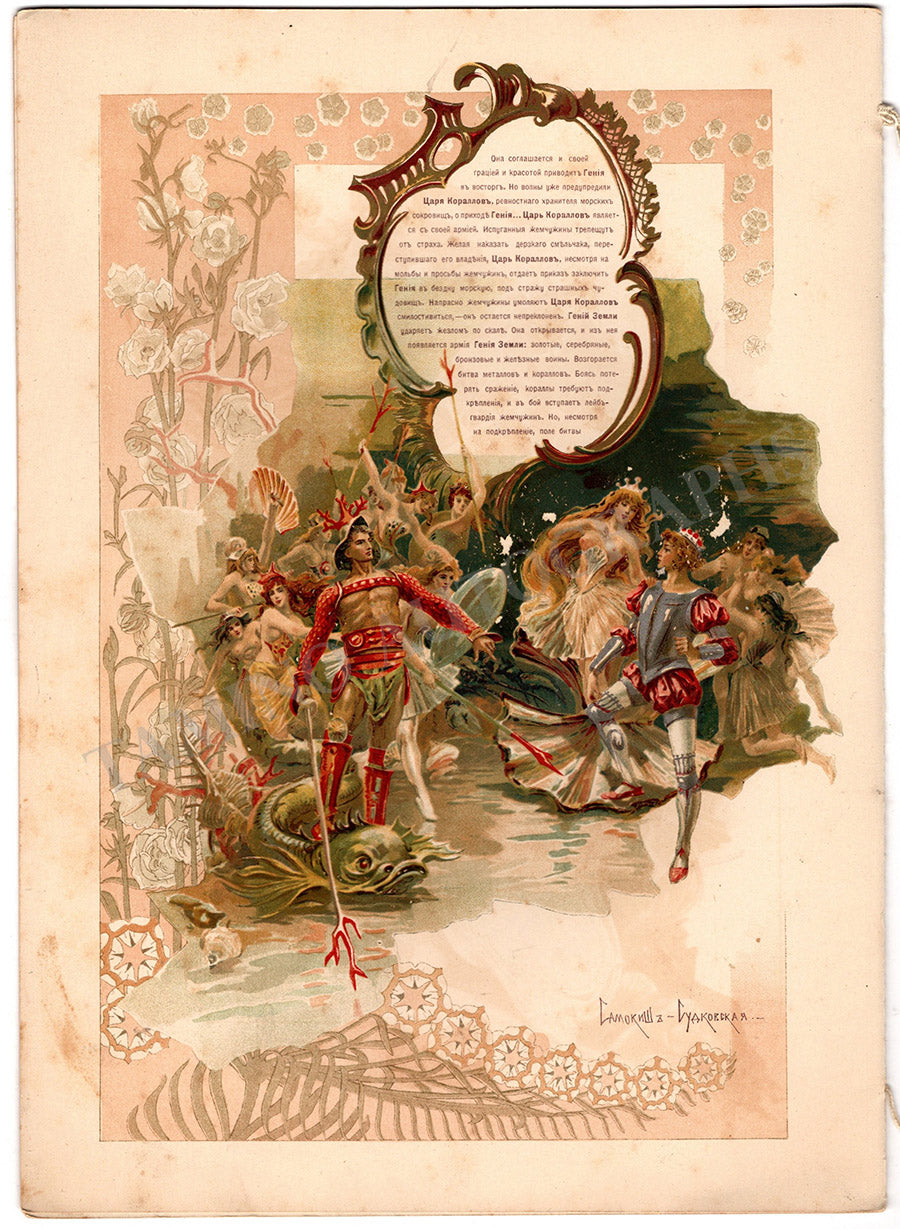 Она соглашается и своей
граціей и красотой приводитъ Генія
въ восторгъ. Но волны уже предупредили
Царя Коралловъ, ревностнаго хранителя морскихъ
сокровищъ, о приходѣ Генія... Царь Коралловъ являет-
ся съ своей арміей. Испуганныя жемчужины трепещутъ
отъ страха. Желая наказать дерзкаго смѣльчака, пере-
ступившаго его владѣнія, Царь Коралловъ, несмотря на
мольбы и просьбы жемчужинъ, отдаетъ приказъ заключить
Генія въ бездну морскую, подъ стражу страшныхъ чу-
довищъ. Напрасно жемчужины умоляютъ Царя Коралловъ
смилостивиться,—онъ остается непреклоненъ. Геній Земли
ударяетъ жезломъ по скалѣ. Она открывается, и изъ нея
появляется армія Генія Земли: золотые, серебряные,
бронзовые и желѣзные воины. Возгорается
битва металловъ и коралловъ. Боясь поте-
рять сраженіе, кораллы требуютъ под-
крѣпленія, и въ бой вступаетъ лейбъ-
гвардія жемчужинъ. Но, несмотря
на подкрѣпленіе, поле битвы
САМОКИШЪ-СУДКОВСКАЯ
TAMINO AUTOGRAPHS